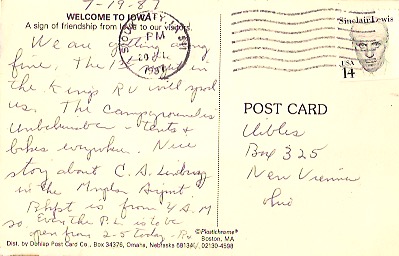 7-19-87
WELCOME TO IOWA
A sign of friendship from Iowa to our visitors.
We are getting along
fine. The 1st night in
the Kings RV will spoil
us. The campground is
tents &
bikes everywhere. Nice
story about C. A.
in the
Bkfst is from 4 A.M
so. Even the P.O. is to be
open from 2-5 today.
PM
20 JUL
1987
Sinclair Lewis
USA
14
POST CARD
Uibles
Box 325
New Vienna
Ohio
©Plastichrome®
Boston, MA
02130-4598
Dist. by Dunlap Post Card Co., Box 34376, Omaha, Nebraska 68134